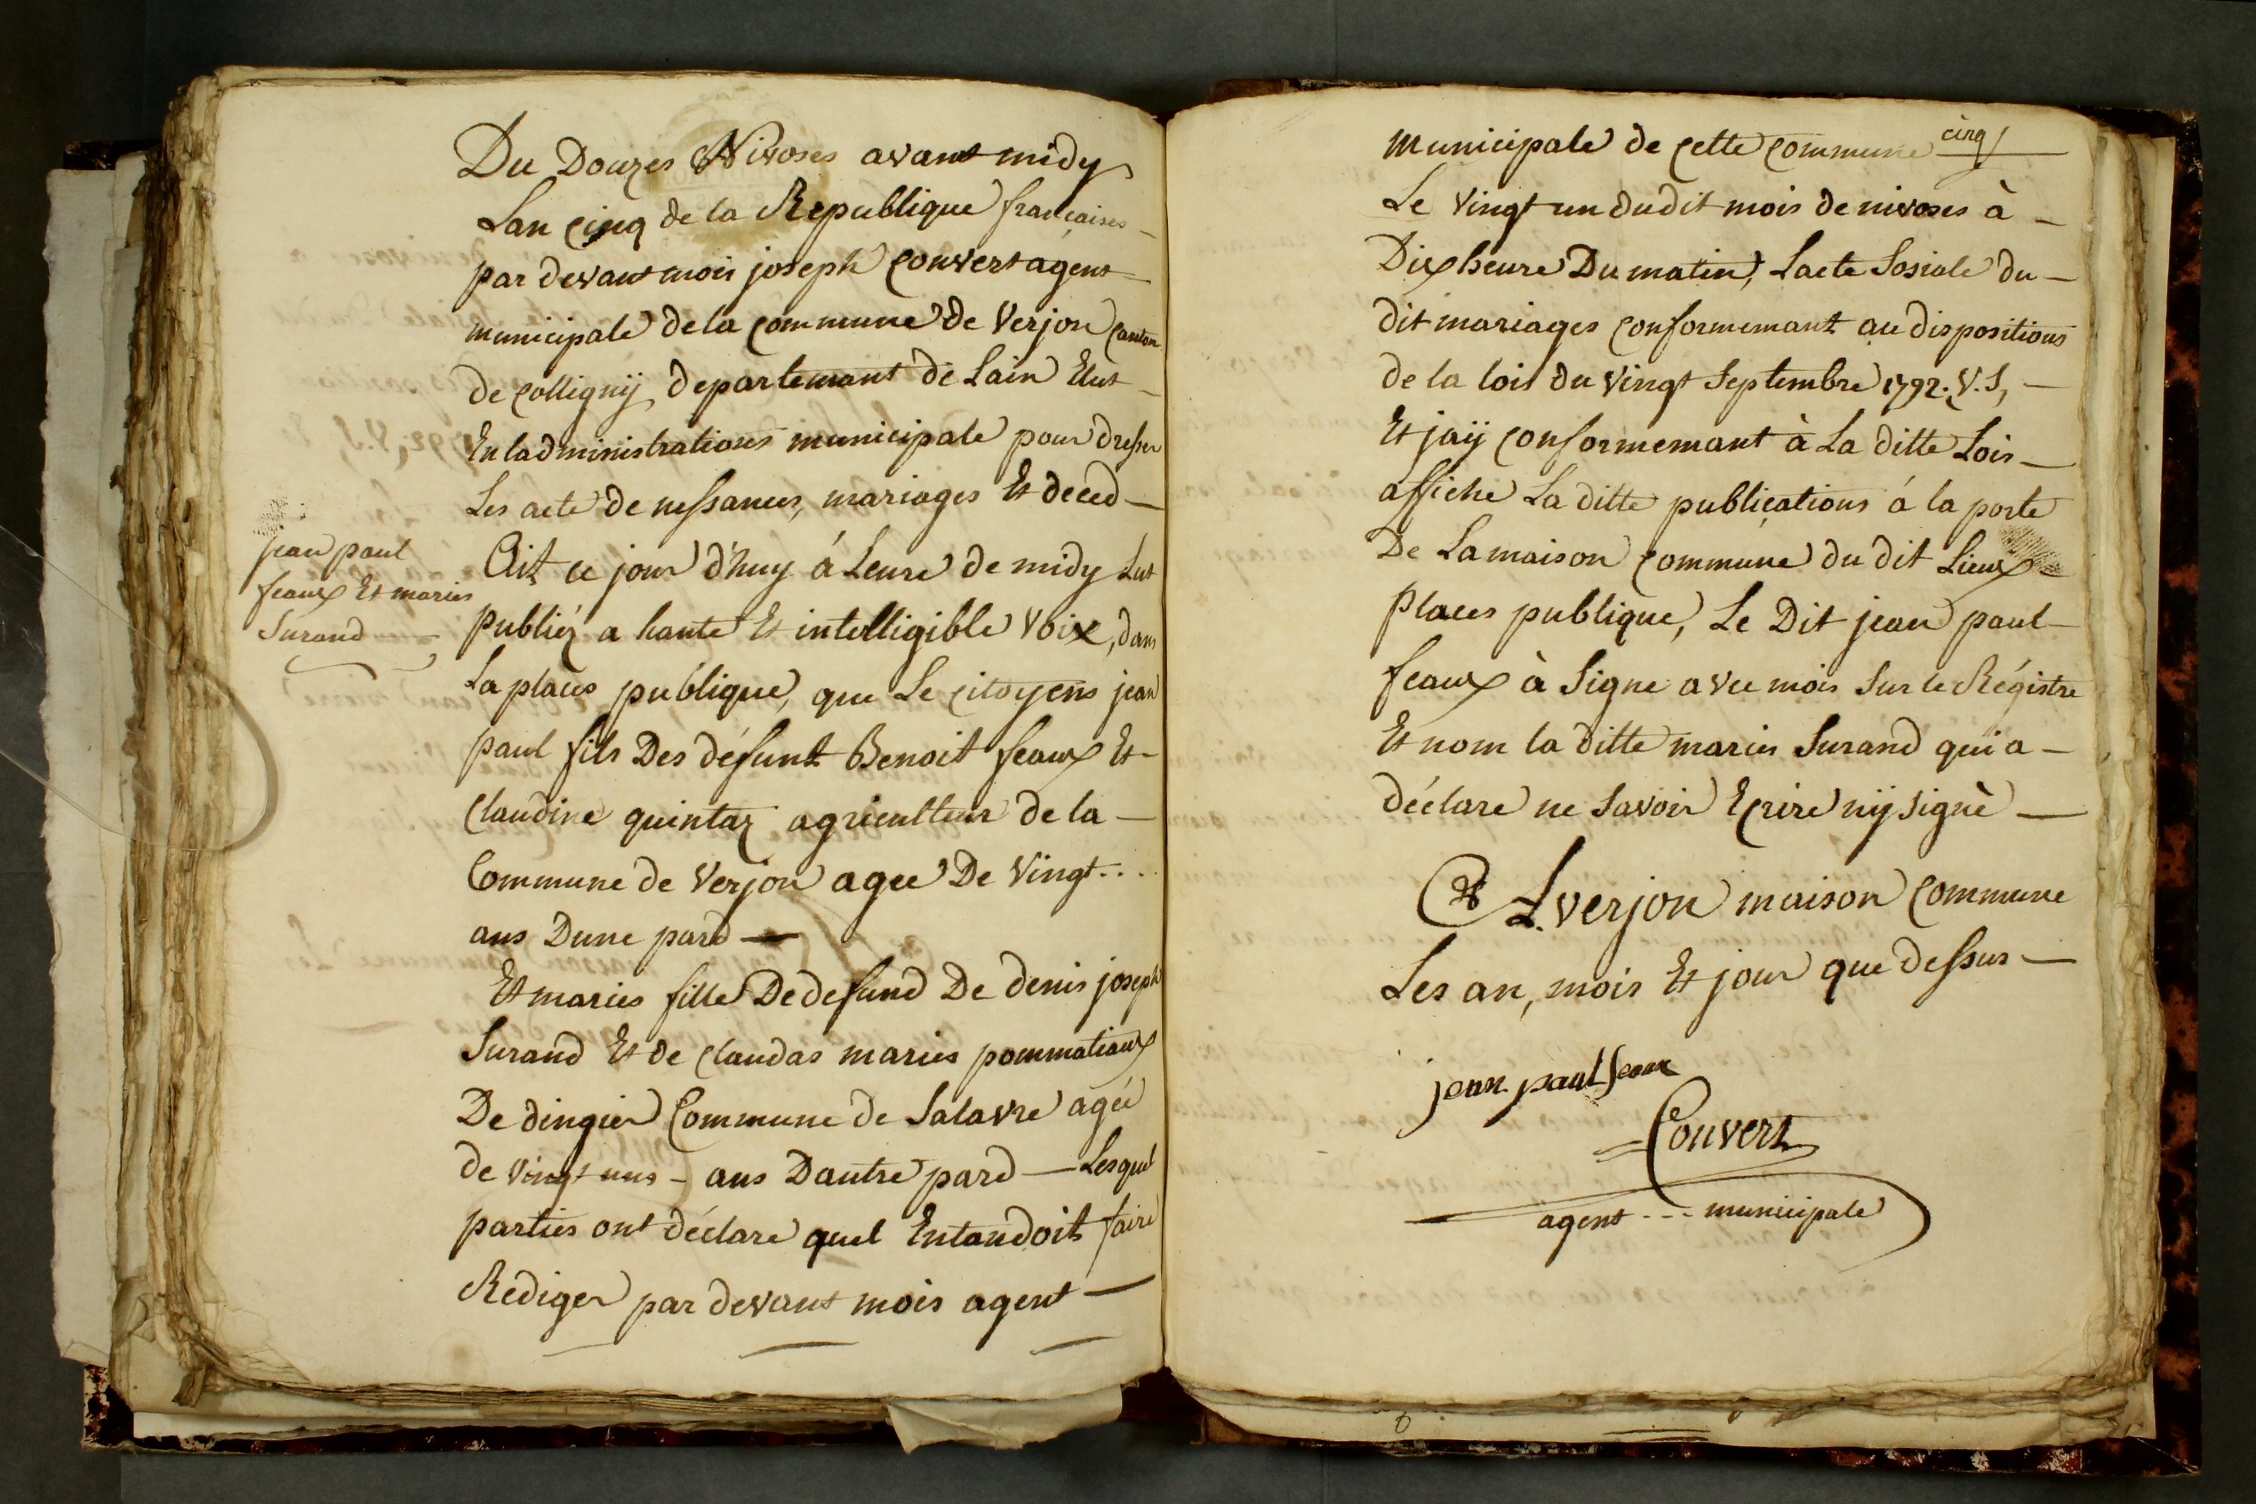 Du Douzes Nivoses avant midy
Lan Cinq de la Republique françaises
par devant mois joseph Convert agent
municipale de la Commune de Verjon Canton
de Colligniÿ departemant de Lain Elut
En ladministrations municipale pour dresser
Les acte de nessances, mariages Et deced
jean paul
feaux Et maries
Surand
Ait ce jour d'huy á Leure de midy Lut
publiéz a haute Et intelligible Voix, dans
La places publique, que Le Citoyens jean
paul fils Des défunt Benoit feaux Et
Claudine quintaz agriculteur de la
Commune de Verjon agee De Vingt....
ans Dune pard
Et maries fille De defund De denis joseph
Surand Et de Claudas maries pommatiaux
De dingier Commune de Salavre agéé
de Vingt uns - ans Dautre pard - Lesquel
parties ont déclare quel Entandoit faire
Rediger par devant mois agent
municipale de Cette Commune cinq
Le Vingt un dudit mois de nivoses à
Dix heure Du matin, Lacte Sosiale du
dit mariages Conformemant au dispositions
de la lois du Vingt Septembre 1792. V.S,
Et jaiÿ Conformemant à La ditte Lois
affiche La ditte publications á la porte
De La maison Commune du dit Lieux
places publique, Le Dit jean paul
feaux à Signe avec mois Sur le Régistre
Et nom la ditte maries Surand qui a
déclare ne Savoir Ecrire nÿ Signè
A verjon maison Commune
Les an, mois Et jour que dessus
jean paul feaux
Convert
agent --- municipale